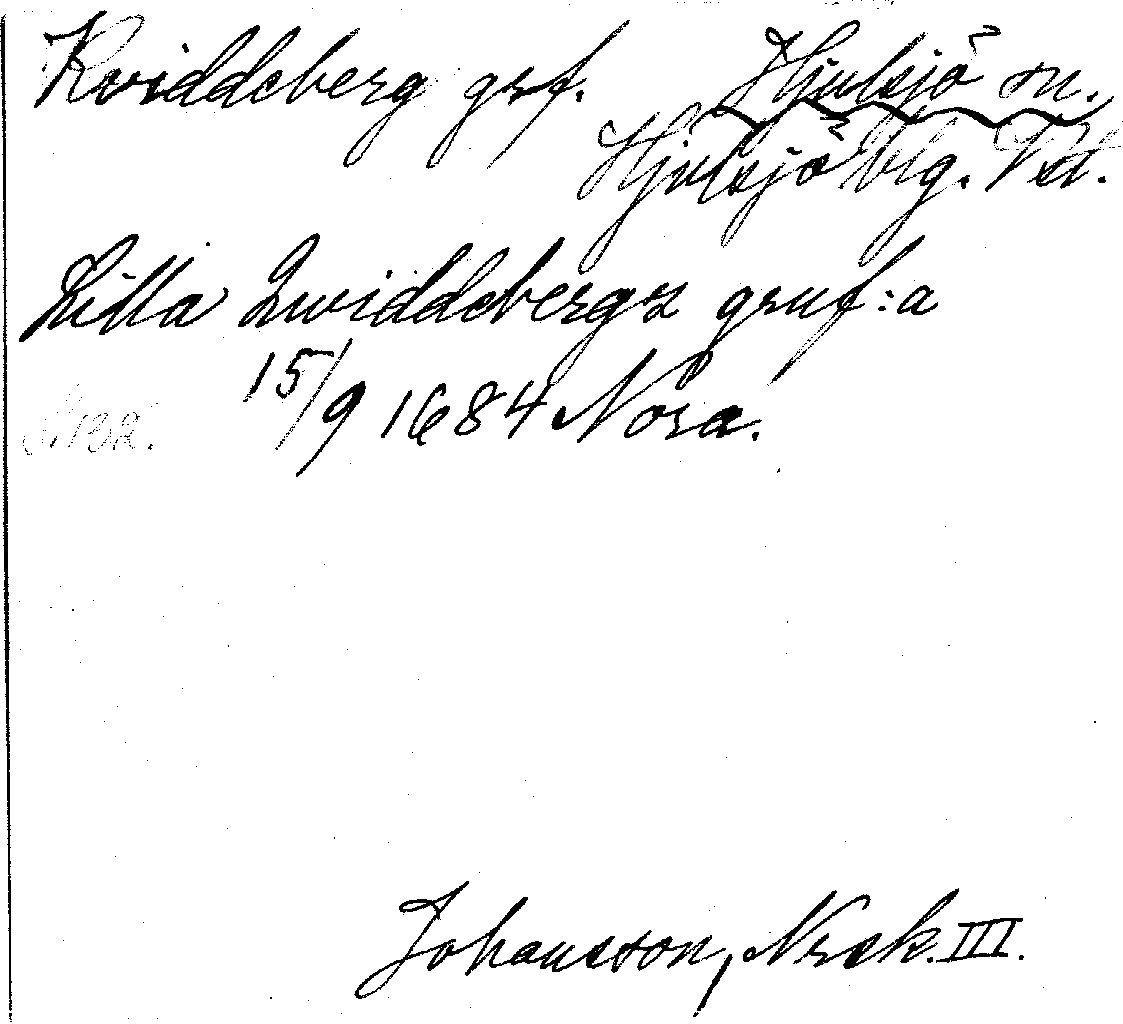 Kviddeberg grf. Hjulsjö sn.
Hjulsjö blg. Vst.
Lilla Qwiddebergz gruf:a
15/9 1684 Nora.
S. 132.
Johansson, Nrsk. III.